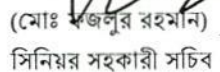 (মোঃ ফজলুর রহমান)
সিনিয়র সহকারী সচিব